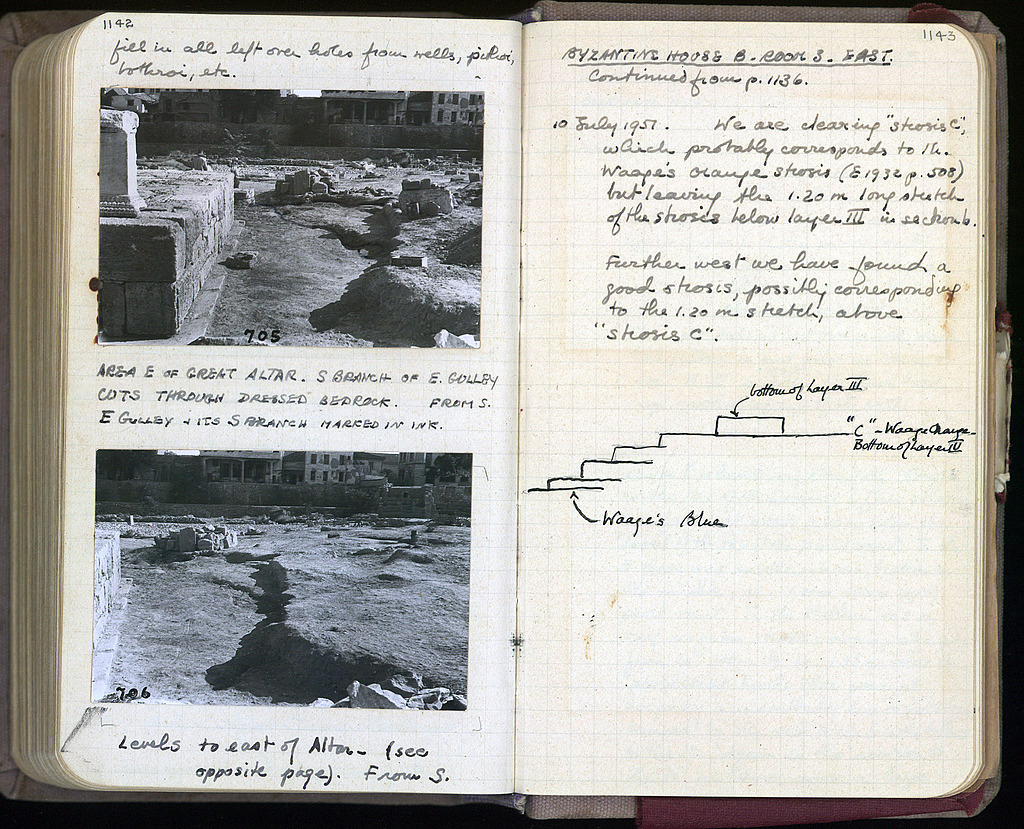 1142
fill in all left over holes from wells, pithoi,
bothroi, etc.
705
AREA E OF GREAT ALTAR. S BRANCH OF E. GULLEY
CUTS THROUGH DRESSED BEDROCK. FROM S.
E GULLEY + ITS S BRANCH MARKED IN INK.
706
Levels to east of Altar - (see
opposite page). From S.
1143
BYZANTINE HOUSE B. ROOM 3. EAST.
Continued from p. 1136.
10 July 1951. We are clearing "strosis C",
which probably corresponds to
Waage's orange strosis (E 1932 p. 508)
but leaving the 1.20 m long stretch
of the strosis below layer III in section b.
Further west we have found a
good strosis, possibly corresponding
to the 1.20 m stretch, above
"strosis C".
bottom of Layer III
"C" - Waage Orange -
Bottom of Layer IV
Waage's Blue